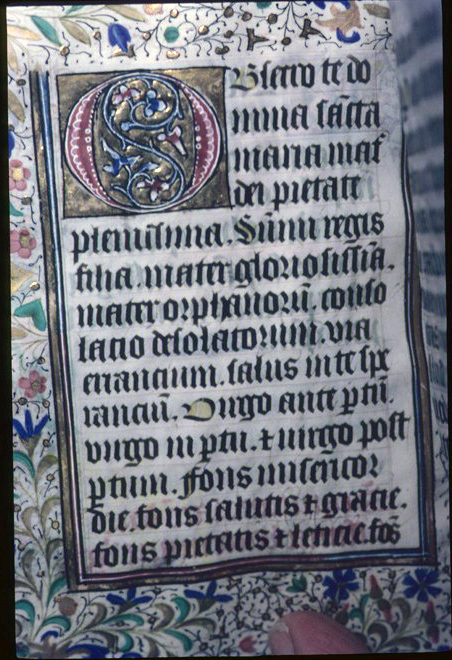 Obsecro te do
mina sc̄ta
maria mat̄
dei pietate
plenissima. Sum̄i regis
filia. mater gloriosissīa.
mater orphanorū. conso
lacio desolatorum. via
errancium. salus in te spe
ranciū. Virgo ante ꝑtū.
virgo in ꝑtu. ⁊ uirgo post
ꝑtum. fons misericor
die. fons salutis ⁊ gracie.
fons pietatis ⁊ leticie. fōs